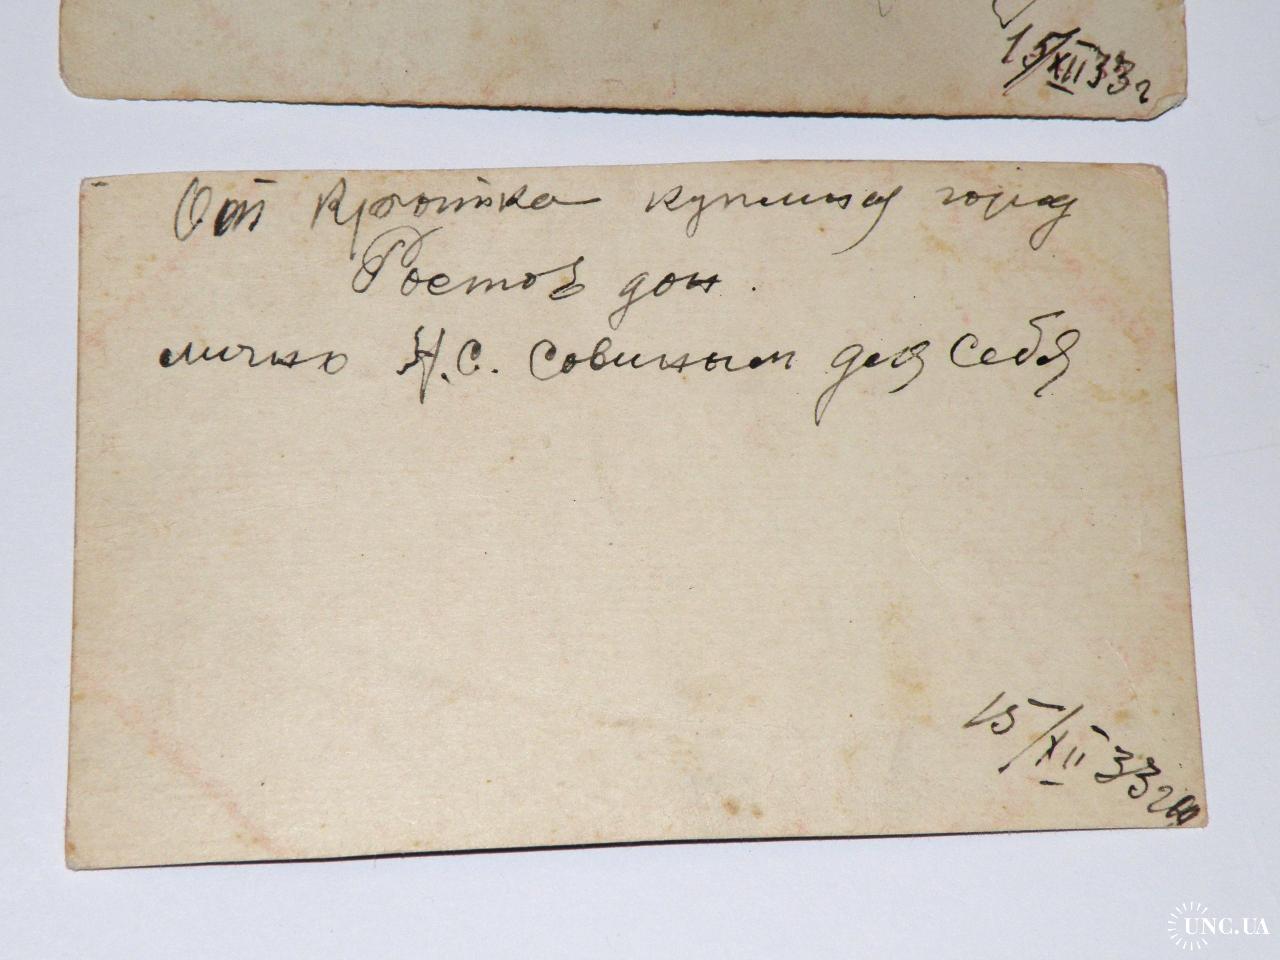 15/XII 33 г
От Кротка куплина город
Ростов дон.
лично Н.С. Совиным для себя
15/XII 33 го
UNC.UA